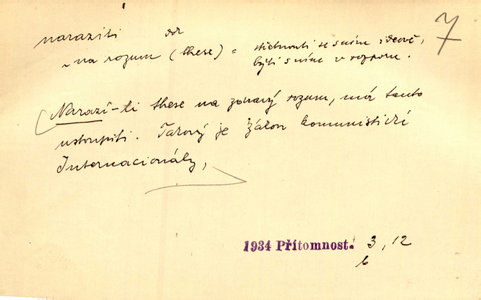 naraziti
na rozum (these) = střetnouti se s ním ideově,
býti s ním v rozporu.
7
Narazí-li these na zdravý rozum, má tento
ustoupiti. Takový je zákon komunistické
Internacionály,
1934 Přítomnost. 3, 12